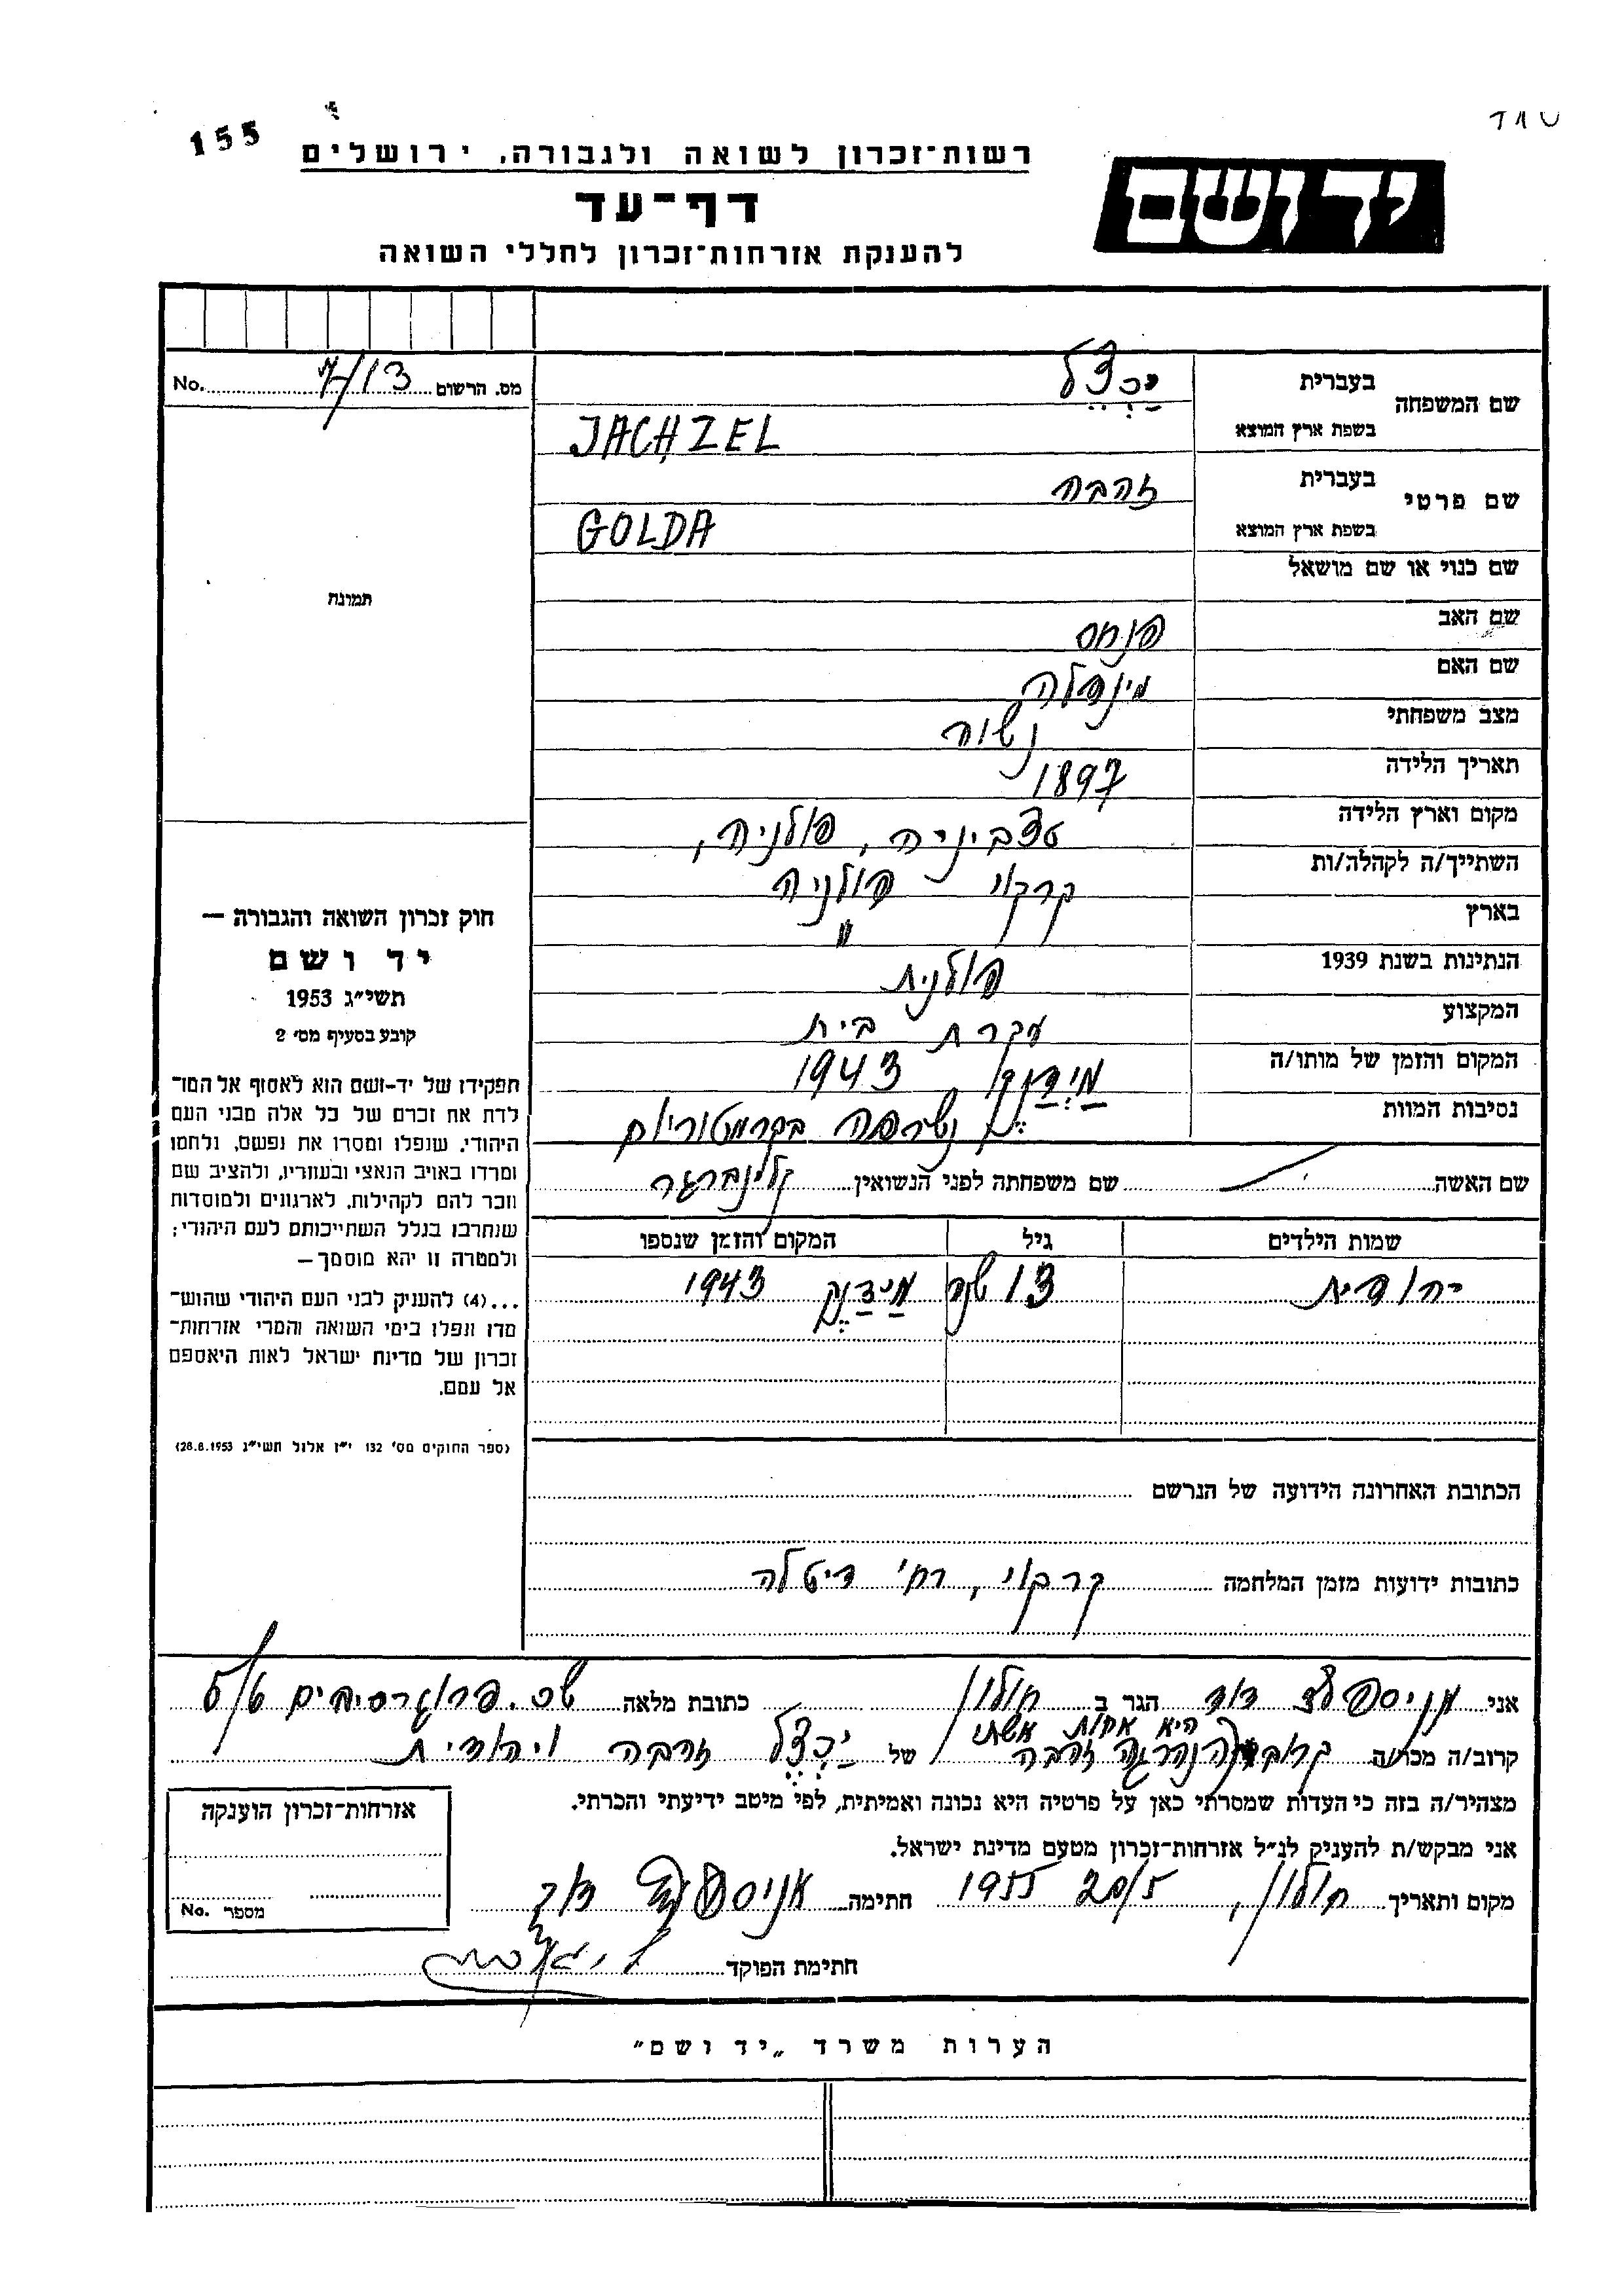 155
רשות־זכרון לשואה ולגבורה, ירושלים
יד ושם
דף־עד
להענקת אזרחות־זכרון לחללי השואה
מס. הרשום 7/13 No.
שם המשפחה בעברית יכצל
בשפת ארץ המוצא JACHZEL
שם פרטי בעברית זהבה
בשפת ארץ המוצא GOLDA
תמונה
שם כנוי או שם מושאל
שם האב פנחס
שם האם מינדלה
מצב משפחתי נשוה
תאריך הלידה 1897
מקום וארץ הלידה טצביניה, פולניה,
השתייך/ה לקהלה/ות קרקוי פולניה
בארץ "
הנתינות בשנת 1939 פולנית
המקצוע עקרת בית
המקום והזמן של מותו/ה מידנק 1943
נסיבות המוות נשרפה בקרמטוריום
שם האשה שם משפחתה לפני הנשואין קלינברגר
שמות הילדים גיל המקום והזמן שנספו
יהודית 13 שנה מידנק 1943
הכתובת האחרונה הידועה של הנרשם
כתובות ידועות מזמן המלחמה קרקוי, רח' דיטלה
חוק זכרון השואה והגבורה —
יד ושם
תשי"ג 1953
קובע בסעיף מס' 2
תפקידו של יד-ושם הוא לאסוף אל המו־
לדת את זכרם של כל אלה מבני העם
היהודי, שנפלו ומסרו את נפשם, נלחמו
ומרדו באויב הנאצי ובעוזריו, ולהציב שם
וזכר להם לקהילות, לארגונים ולמוסדות
שנחרבו בגלל השתייכותם לעם היהודי;
ולמטרה זו יהא מוסמך —
...(4) להעניק לבני העם היהודי שהוש־
מדו ונפלו בימי השואה והמרי אזרחות־
זכרון של מדינת ישראל לאות היאספם
אל עמם.
(ספר החוקים מס' 132 י"ז אלול תשי"ג 28.8.1953)
אני דוד הגר ב חולון כתובת מלאה שכ. פרוגרסיבים
היא אחות אשתי
קרוב/ה מכר/ה זהבה של יכצל זהבה ויהודית
מצהיר/ה בזה כי העדות שמסרתי כאן על פרטיה היא נכונה ואמיתית, לפי מיטב ידיעתי והכרתי.
אני מבקש/ת להעניק לנ"ל אזרחות־זכרון מטעם מדינת ישראל.
מקום ותאריך חולון, 20/5 1955 חתימה
חתימת הפוקד
אזרחות־זכרון הוענקה
מספר No.
הערות משרד "יד ושם"